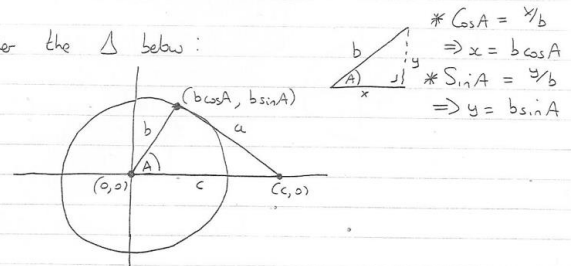 er the Δ below :
* CosA = x/b
⇒ x = bcosA
* SinA = y/b
⇒ y = bsinA
b
A
y
x
(bcosA, bsinA)
b
a
A
(0,0)
c
(c,0)